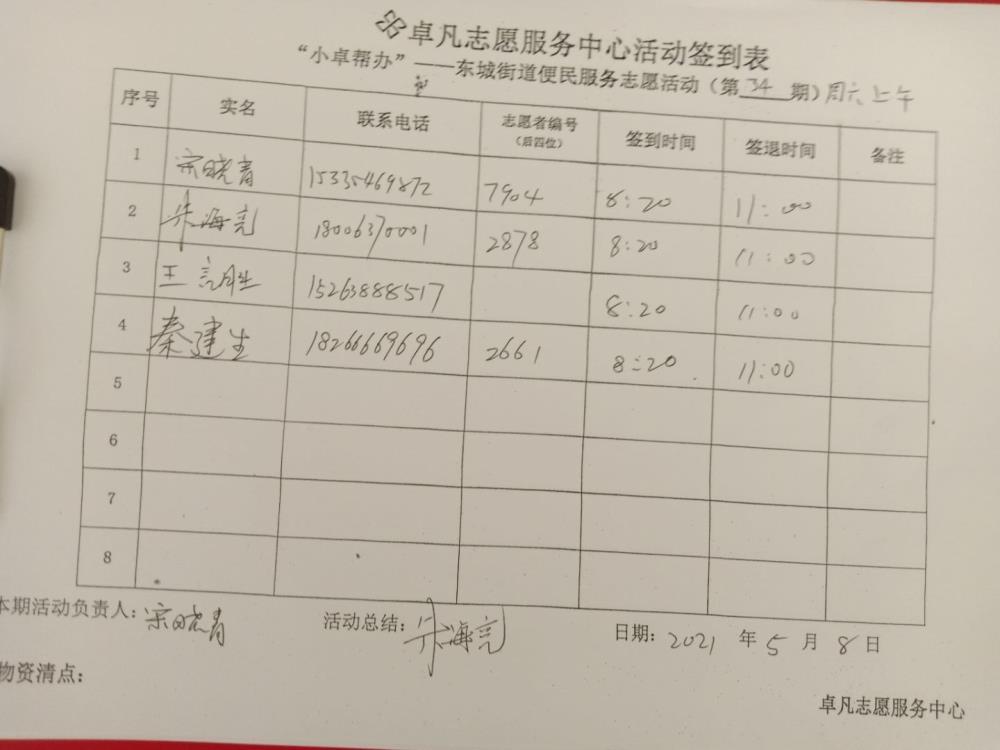 卓凡志愿服务中心活动签到表
“小卓帮办”——东城街道便民服务志愿活动（第 34 期）周六上午
序号 实名 联系电话 志愿者编号（后四位） 签到时间 签退时间 备注
1 宗晓青 15335469872 7904 8:20 11:00
2 朱海亮 18006370001 2878 8:20 11:00
3 王言胜 15263888517 8:20 11:00
4 秦建生 18266669696 2661 8:20 11:00
5
6
7
8
本期活动负责人：宗晓青 活动总结：朱海亮 日期：2021 年 5 月 8 日
物资清点：
卓凡志愿服务中心